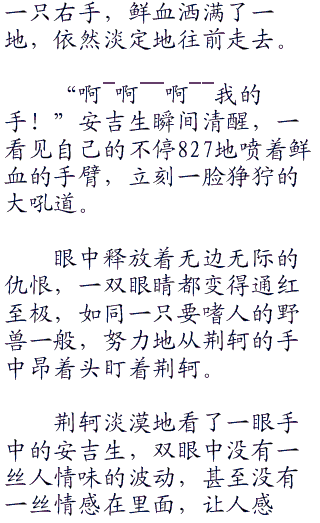 一只右手，鲜血洒满了一
地，依然淡定地往前走去。
“啊¯啊¯¯啊¯¯我的
手！”安吉生瞬间清醒，一
看见自己的不停827地喷着鲜
血的手臂，立刻一脸狰狞的
大吼道。
眼中释放着无边无际的
仇恨，一双眼睛都变得通红
至极，如同一只要嗜人的野
兽一般，努力地从荆轲的手
中昂着头盯着荆轲。
荆轲淡漠地看了一眼手
中的安吉生，双眼中没有一
丝人情味的波动，甚至没有
一丝情感在里面，让人感